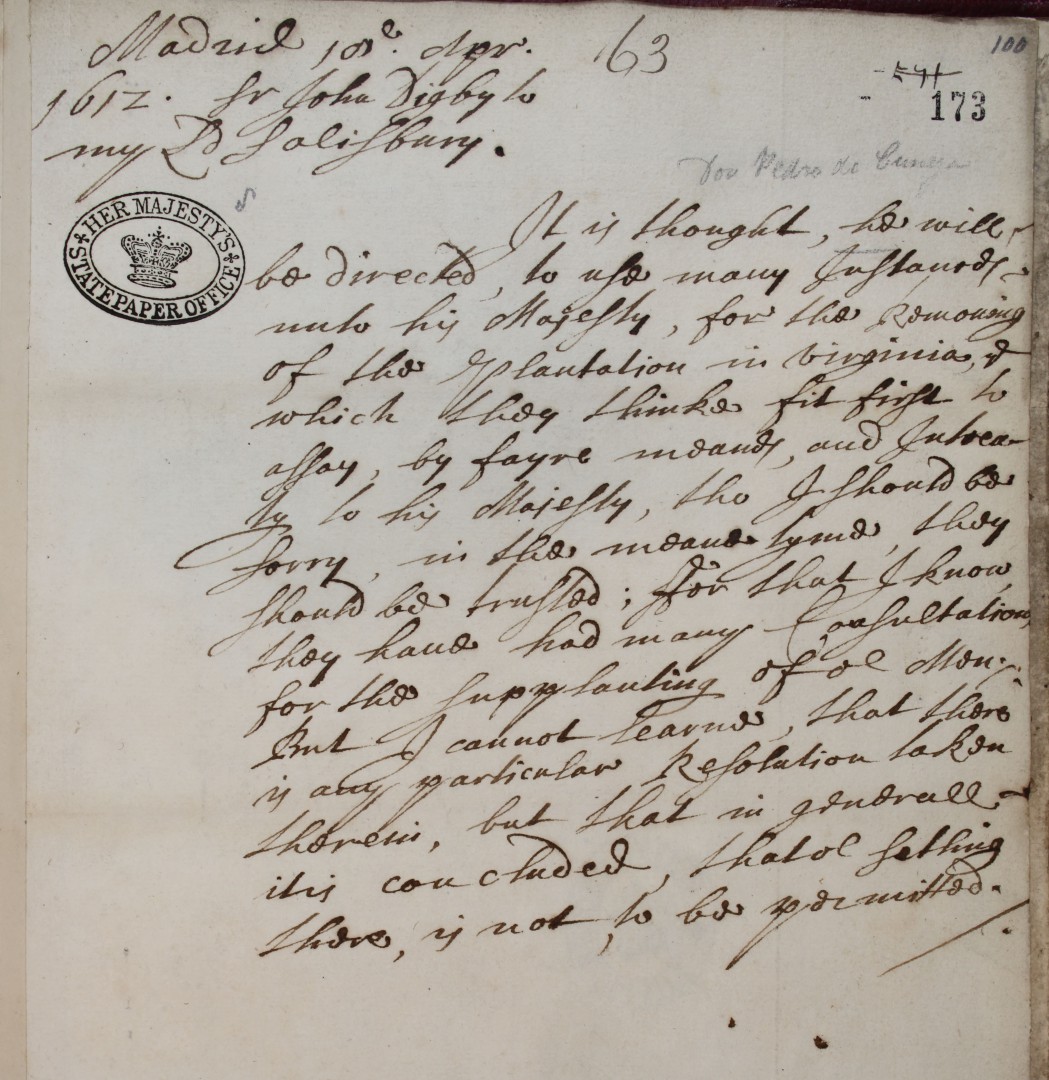 Madrid 18e. Apr.
1612. Sr John Digby to
my Ld Salisbury.
63
100
173
Don Pedro de Cunega
HER MAJESTY'S
STATE PAPER OFFICE
It is thought, he will
be directed, to use many Instances
unto his Majesty, for the Removing
of the Plantation in Virginia,
which they thinke fit first to
assay, by fayre meanes, and Intrea-
ty to his Majesty, tho I should be
sorry, in the meane tyme, they
should be trusted; For that I know
they have had many Consultations
for the supplanting of or Men:
But I cannot learne, that there
is any particular Resolution taken
therein, but that in generall
it is concluded, that or setling
there, is not to be permitted.